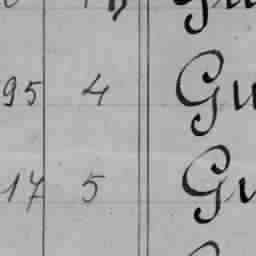 95 4 Gu
17 5 Gu